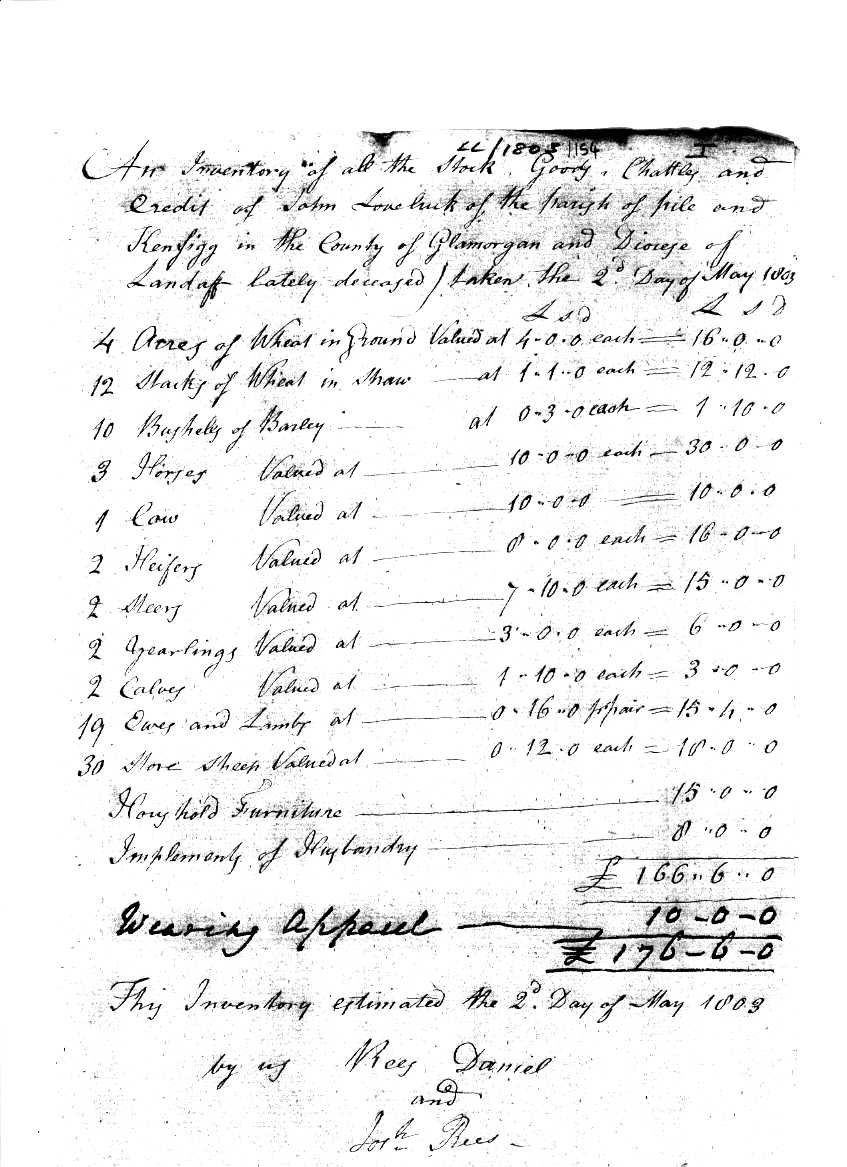 LL/1803/154 I
An Inventory of all the Stock, Goods, Chattles and
Credit of John Loveluck of the parish of pile and
Kenfigg in the County of Glamorgan and Diocese of
Landaff lately deceased) taken the 2d Day of May 1803
£ s d £ s d
4 Acres of Wheat in Ground Valued at 4-0-0 each = 16-0-0
12 Stacks of Wheat in Straw — at 1-1-0 each = 12-12-0
10 Bushells of Barley — at 0-3-0 each = 1-10-0
3 Horses Valued at — 10-0-0 each = 30-0-0
1 Cow Valued at — 10-0-0 = 10-0-0
2 Heifers Valued at — 8-0-0 each = 16-0-0
2 Steers Valued at — 7-10-0 each = 15-0-0
2 Yearlings Valued at — 3-0-0 each = 6-0-0
2 Calves Valued at — 1-10-0 each = 3-0-0
19 Ewes and Lambs at — 0-16-0 pr pair = 15-4-0
30 Store Sheep Valued at — 0-12-0 each = 18-0-0
Houshold Furniture — 15-0-0
Implements of Husbandry — 8-0-0
£ 166-6-0
Wearing Apparel — 10-0-0
£ 176-6-0
This Inventory estimated the 2d. Day of May 1803
by us Rees Daniel
and
Josh Rees